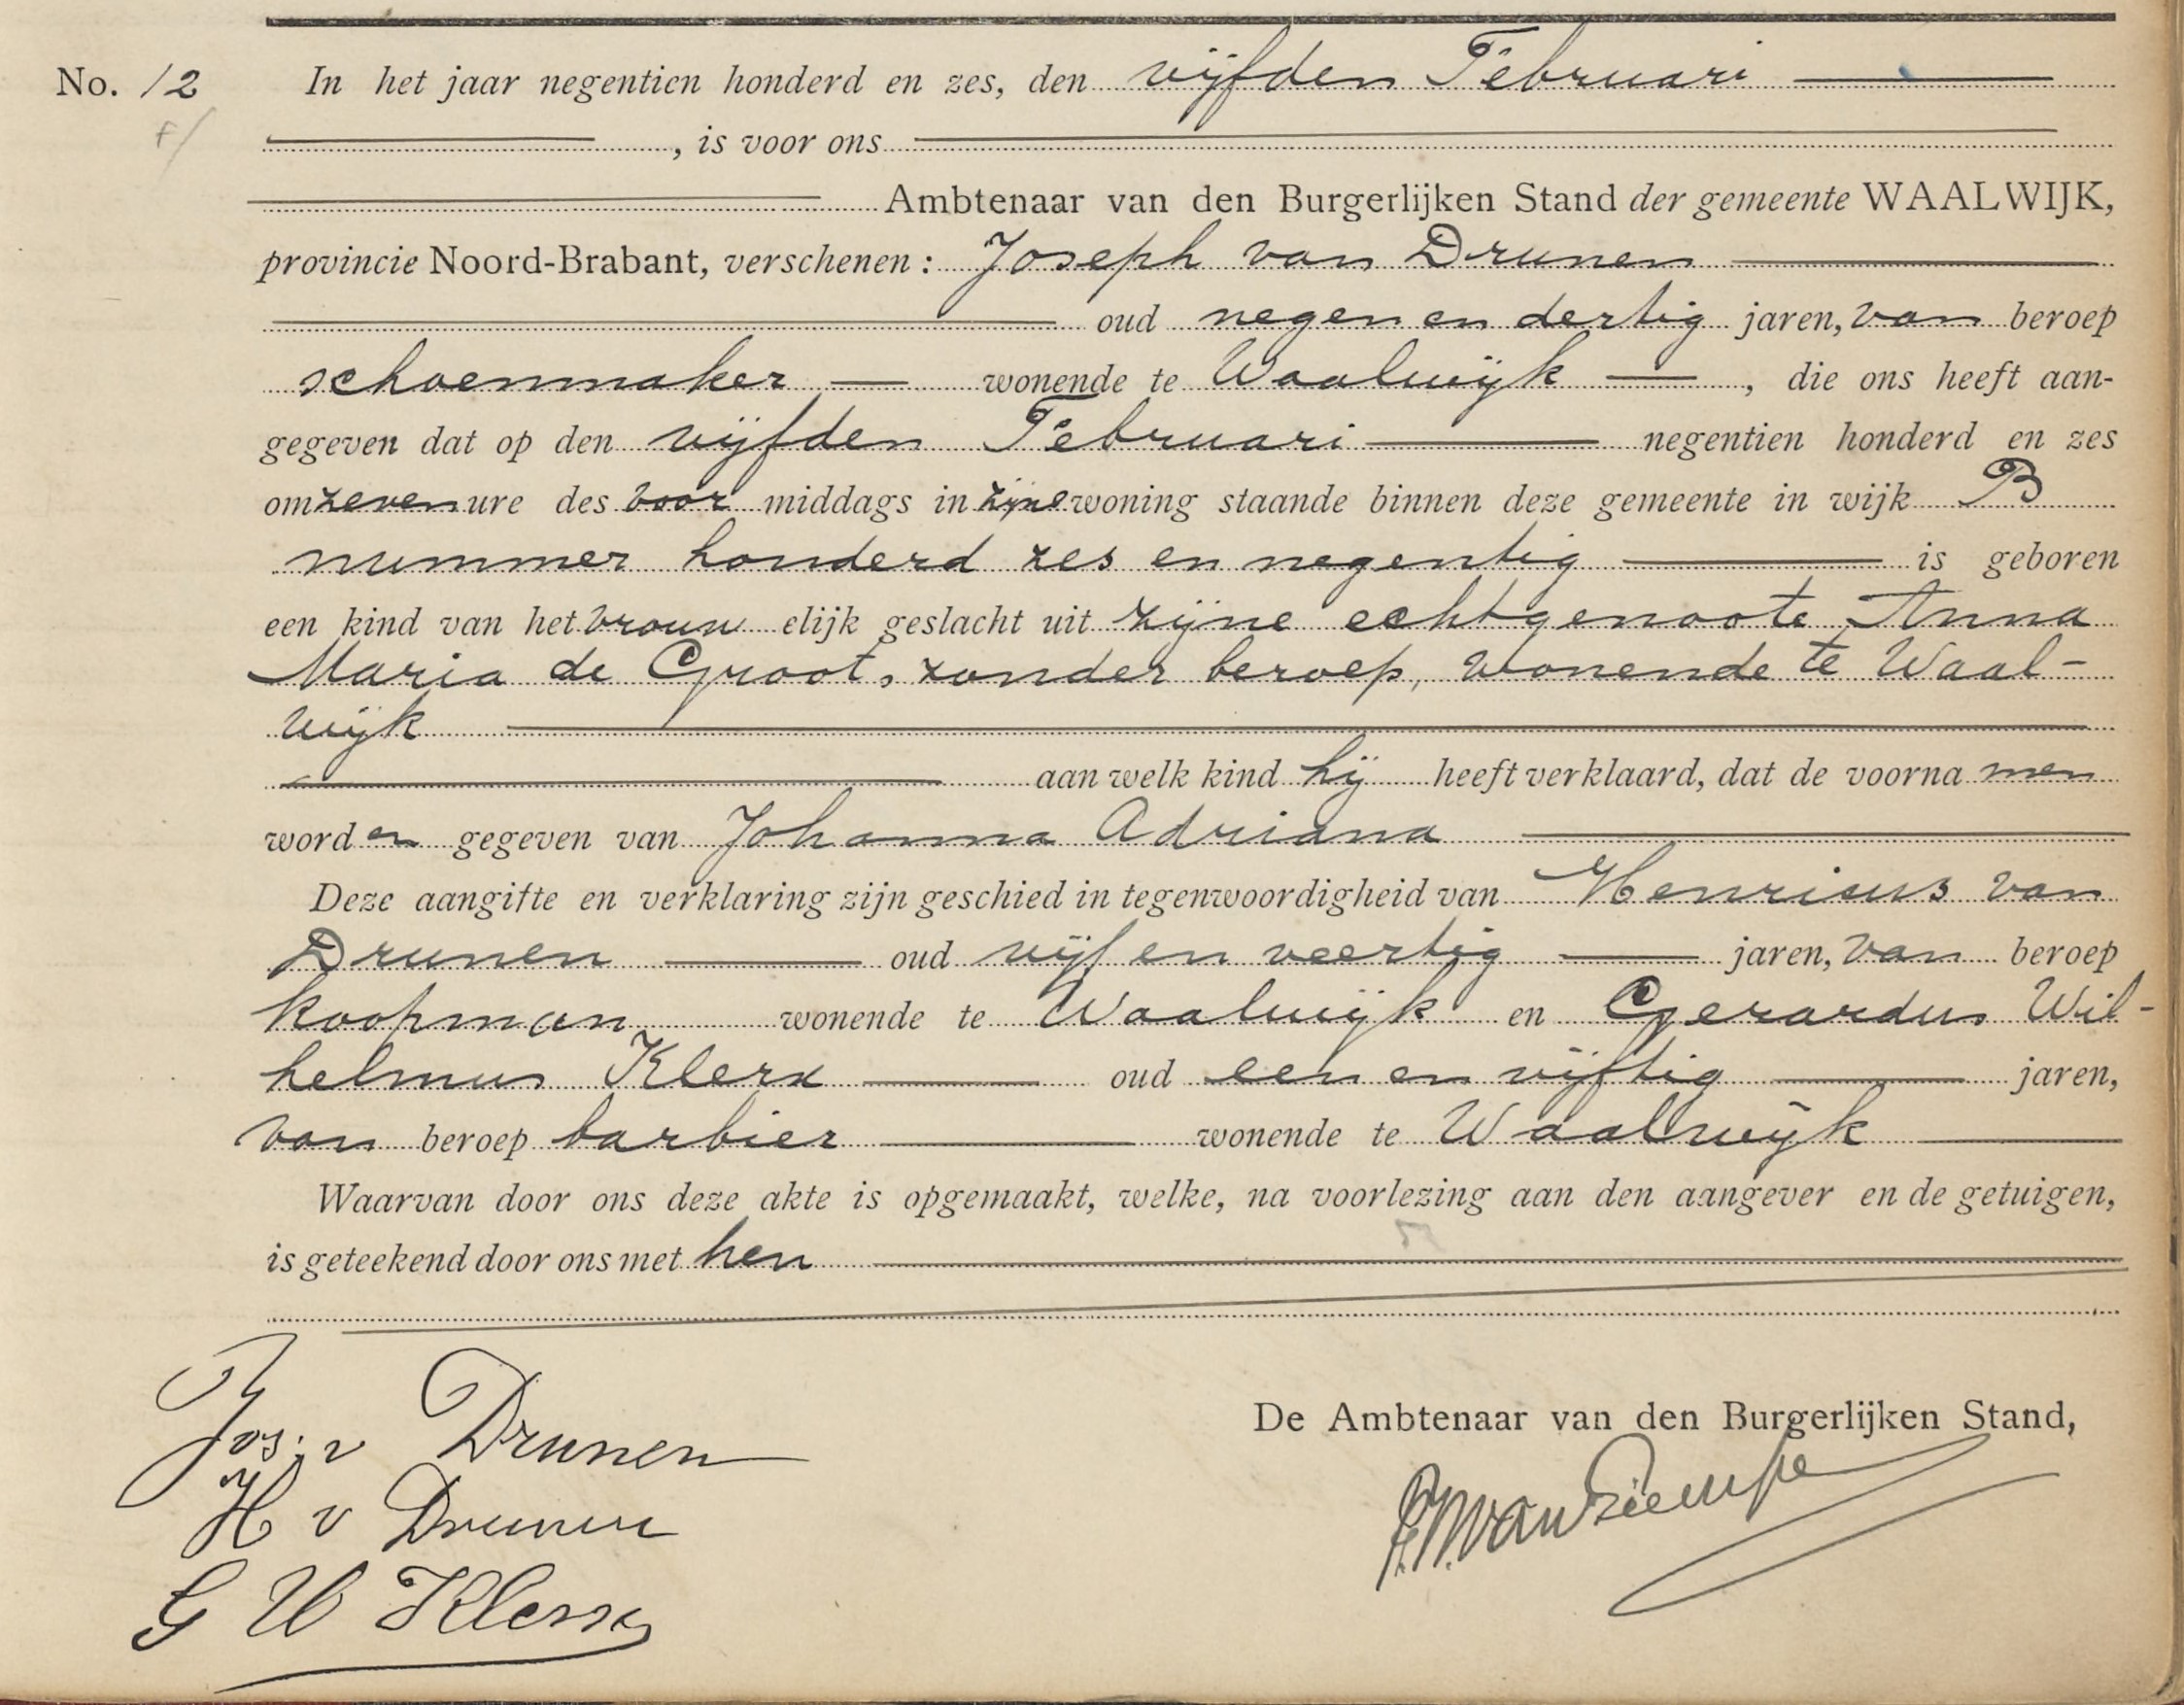 No. 12 In het jaar negentien honderd en zes, den vijfden Februari
, is voor ons
Ambtenaar van den Burgerlijken Stand der gemeente WAALWIJK,
provincie Noord-Brabant, verschenen: Joseph van Drunen
oud negen en dertig jaren, van beroep
schoenmaker wonende te Waalwijk, die ons heeft aan-
gegeven dat op den vijfden Februari negentien honderd en zes
om zeven ure des voor middags in zijne woning staande binnen deze gemeente in wijk B
nummer honderd zes en negentig is geboren
een kind van het vrouw elijk geslacht uit zijne echtgenoote Anna
Maria de Groot, zonder beroep, wonende te Waal-
wijk
aan welk kind hij heeft verklaard, dat de voorna men
word en gegeven van Johanna Adriana
Deze aangifte en verklaring zijn geschied in tegenwoordigheid van Henricus van
Drunen oud vijf en veertig jaren, van beroep
koopman wonende te Waalwijk en Gerardus Wil-
helmus Klerx oud een en vijftig jaren,
van beroep barbier wonende te Waalwijk
Waarvan door ons deze akte is opgemaakt, welke, na voorlezing aan den aangever en de getuigen,
is geteekend door ons met hen
De Ambtenaar van den Burgerlijken Stand,
Jos. v Drunen
H v Drunen
G W Klerx